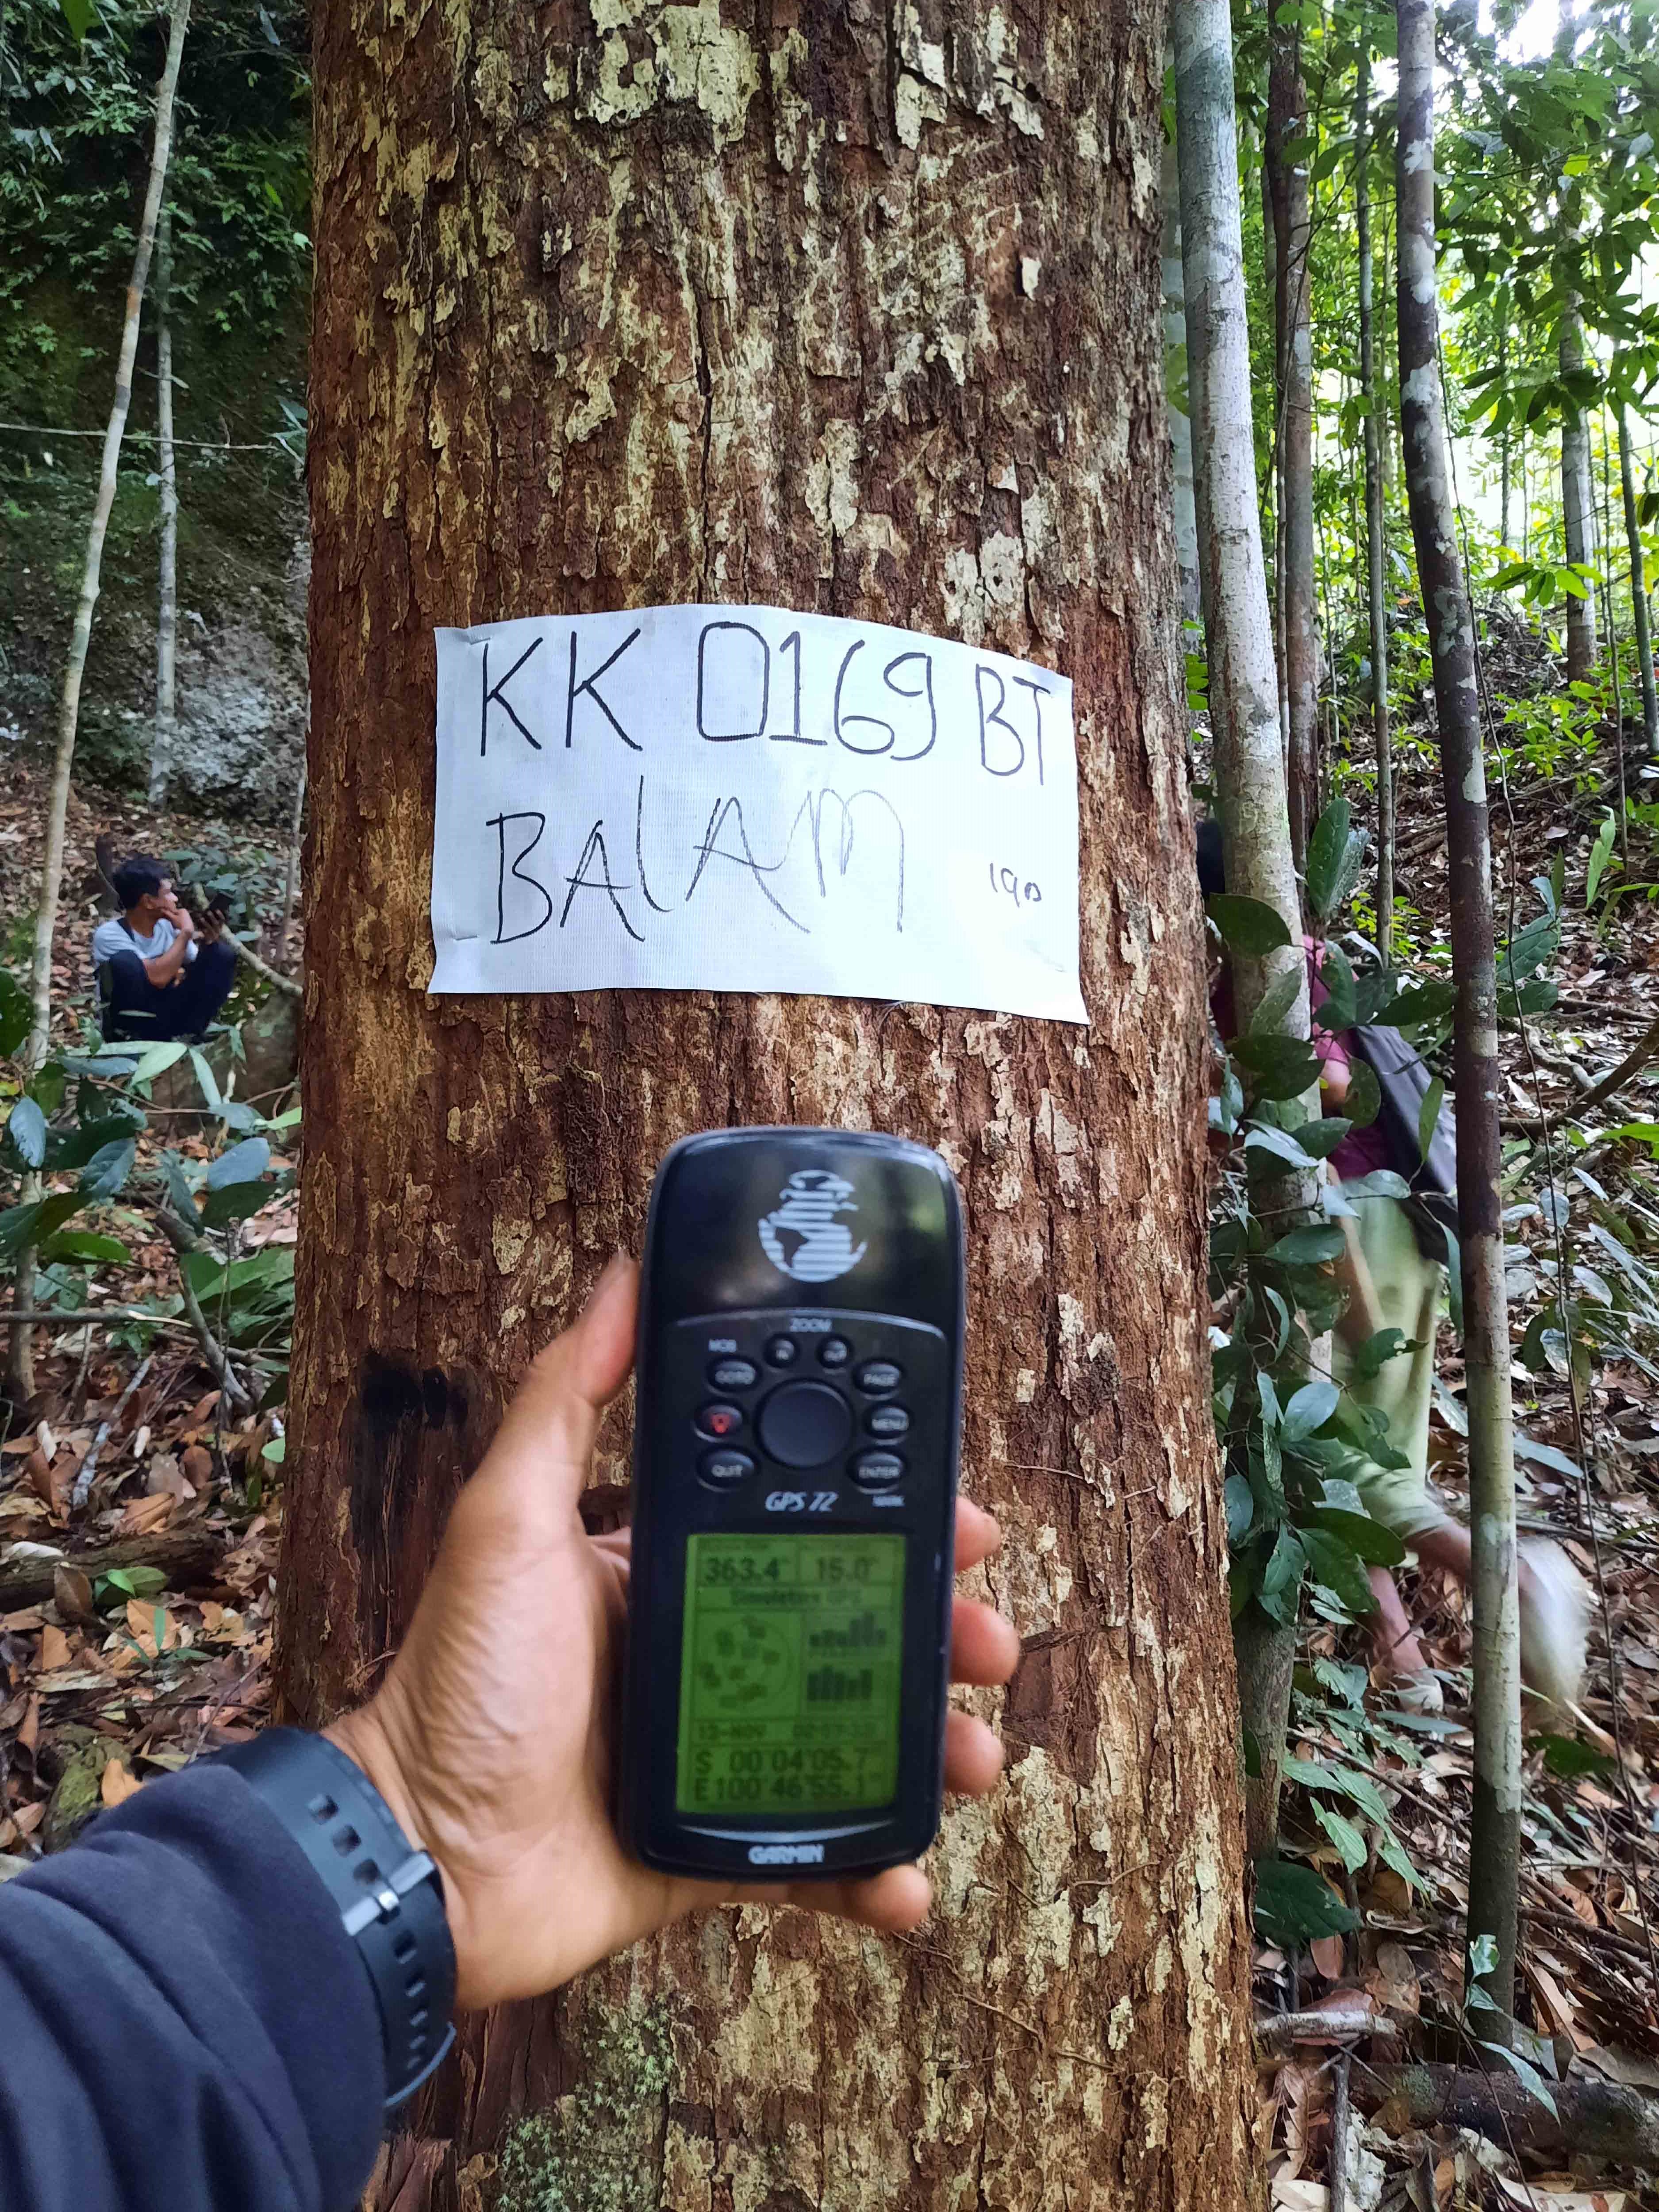 KK 0169 BT
BALAM
190
ZOOM
MOB
GOTO
PAGE
MENU
QUIT
ENTER
MARK
GPS 72
363.4 15.0
S 00°04'05.7"
E100°46'55.1"
GARMIN